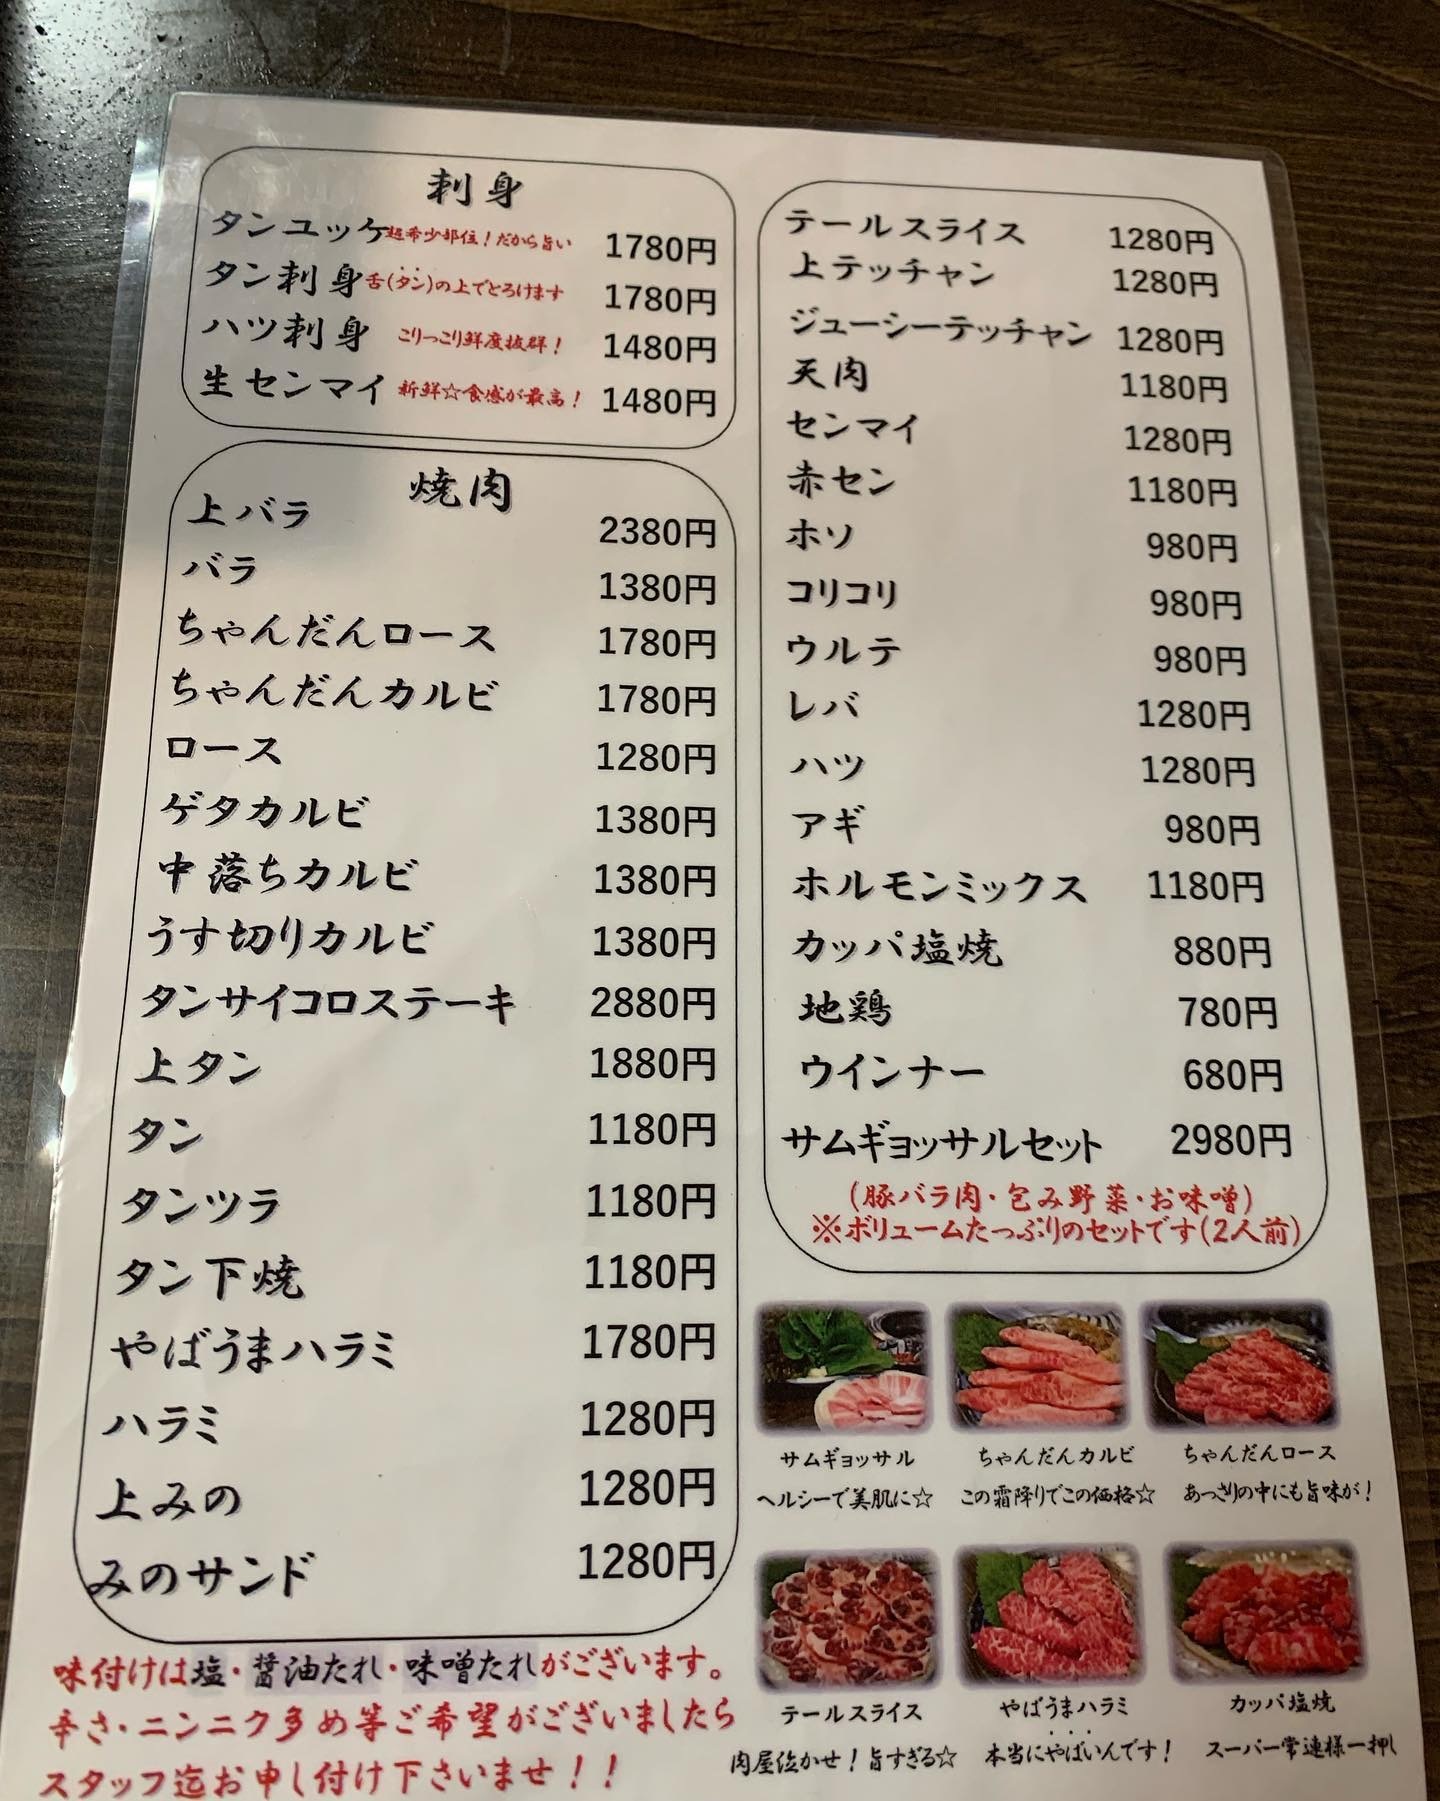 刺身
タンユッケ 超希少部位！だから旨い 1780円
タン刺身 舌(タン)の上でとろけます 1780円
ハツ刺身 こりっこり鮮度抜群！ 1480円
生センマイ 新鮮☆食感が最高！ 1480円
焼肉
上バラ 2380円
バラ 1380円
ちゃんだんロース 1780円
ちゃんだんカルビ 1780円
ロース 1280円
ゲタカルビ 1380円
中落ちカルビ 1380円
うす切りカルビ 1380円
タンサイコロステーキ 2880円
上タン 1880円
タン 1180円
タンツラ 1180円
タン下焼 1180円
やばうまハラミ 1780円
ハラミ 1280円
上みの 1280円
みのサンド 1280円
味付けは塩・醤油たれ・味噌たれがございます。
辛さ・ニンニク多め等ご希望がございましたら
スタッフ迄お申し付け下さいませ！！
テールスライス 1280円
上テッチャン 1280円
ジューシーテッチャン 1280円
天肉 1180円
センマイ 1280円
赤セン 1180円
ホソ 980円
コリコリ 980円
ウルテ 980円
レバ 1280円
ハツ 1280円
アギ 980円
ホルモンミックス 1180円
カッパ塩焼 880円
地鶏 780円
ウインナー 680円
サムギョッサルセット 2980円
(豚バラ肉・包み野菜・お味噌)
※ボリュームたっぷりのセットです(2人前)
サムギョッサル ちゃんだんカルビ ちゃんだんロース
ヘルシーで美肌に☆ この霜降りでこの価格☆ あっさりの中にも旨味が！
テールスライス やばうまハラミ カッパ塩焼
肉屋泣かせ！旨すぎる☆ 本当にやばいんです！ スーパー常連様一押し